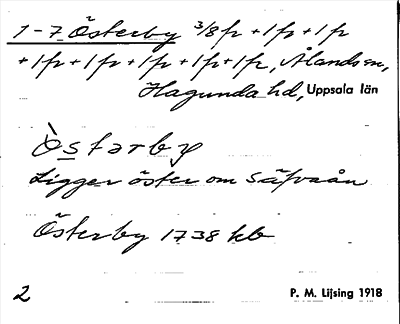 1-7 Österby 3/8 fr + 1 fr + 1 fr
+ 1 fr + 1 fr + 1 fr + 1 fr + 1 fr, Ålands sn,
Hagunda hd, Uppsala län
Òstərby
Ligger öster om Säfvaån
Österby 1738 kb
2 P. M. Lijsing 1918